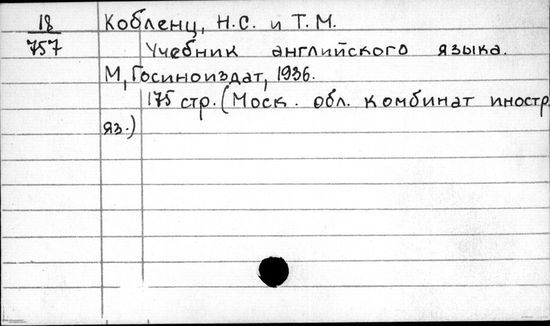 18
757
Кобленц, Н.С. и Т.М.
Учебник английского языка.
М, Госиноиздат, 1936.
175 стр. (Моск. обл. комбинат иностр.
яз.)